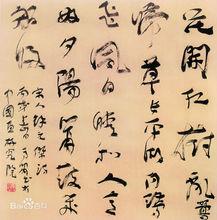 花開红樹亂鶯
啼草長平湖白鷺
飛風日晴和人意
好夕陽簫鼓幾
船歸
宋人徐元傑詩
中國畫研究院
Baidu百科